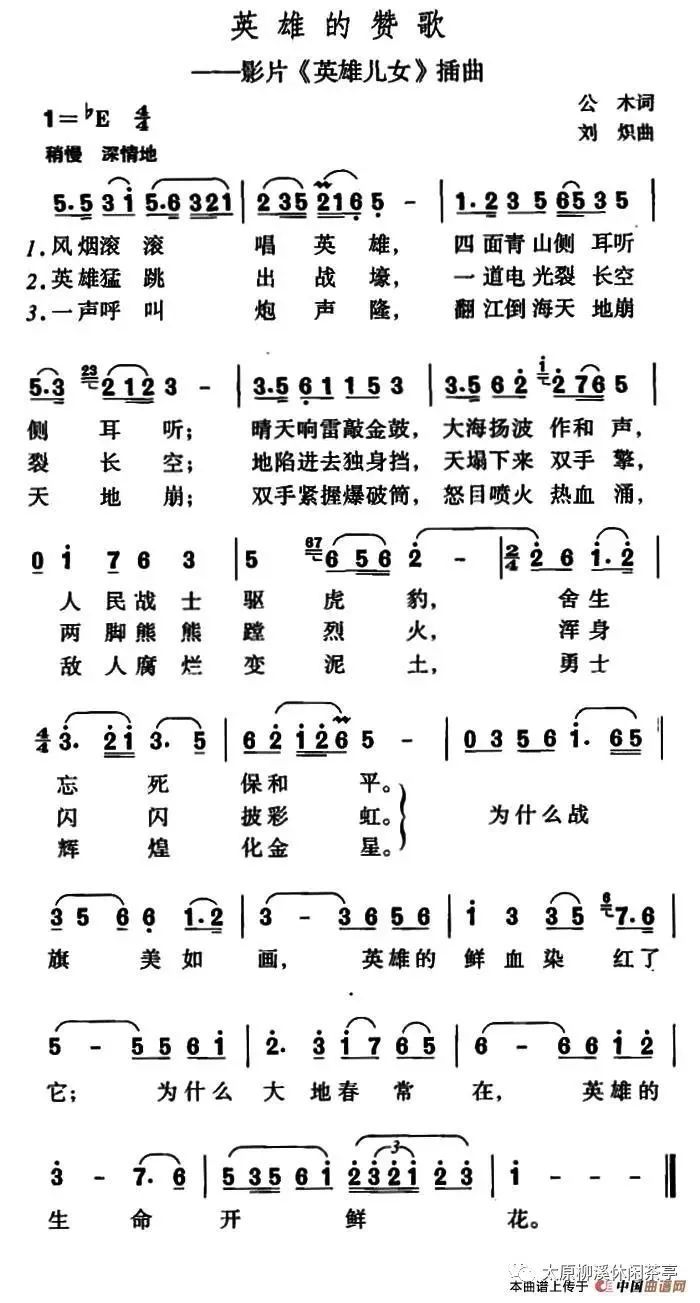 英雄的赞歌
——影片《英雄儿女》插曲
1=♭E 4/4
公木词
刘炽曲
稍慢 深情地
5.5 3 1 5.6 321 | 2 35 2 1 6 5 - | 1.2 3 5 65 3 5 |
1.风烟滚 滚 唱英雄, 四面青山侧 耳听
2.英雄猛 跳 出战壕, 一道电光裂 长空
3.一声呼 叫 炮声隆, 翻江倒海天 地崩
5.3 23 2 12 3 - | 3.5 6 1 1 5 3 | 3.5 6 2 1 2 76 5 |
侧 耳 听; 晴天响雷敲金鼓, 大海扬波 作和 声,
裂 长 空; 地陷进去独身挡, 天塌下来 双手 擎,
天 地 崩; 双手紧握爆破筒, 怒目喷火 热血 涌,
0 1 7 6 3 | 5 67 6 56 2 - | 2/4 2 6 1.2 |
人民战士 驱 虎 豹, 舍生
两脚熊熊 蹚 烈 火, 浑身
敌人腐烂 变 泥 土, 勇士
4/4 3. 21 3. 5 | 6 2 1 2 6 5 - | 0 3 5 6 1. 65 |
忘 死 保和 平。
闪 闪 披彩 虹。 为什么战
辉 煌 化金 星。
3 5 6 6 1.2 | 3 - 3 6 5 6 | 1 3 35 6 7.6 |
旗 美如 画, 英雄的 鲜血染 红了
5 - 5 5 6 1 | 2. 3 1 7 6 5 | 6 - 6 6 1 2 |
它; 为什么 大地春常 在, 英雄的
3 - 7. 6 | 5 35 6 1 2 3 2 1 2 3 | 1 - - - ‖
3
生 命 开 鲜 花。
太原柳溪休闲茶亭
本曲谱上传于 中国曲谱网